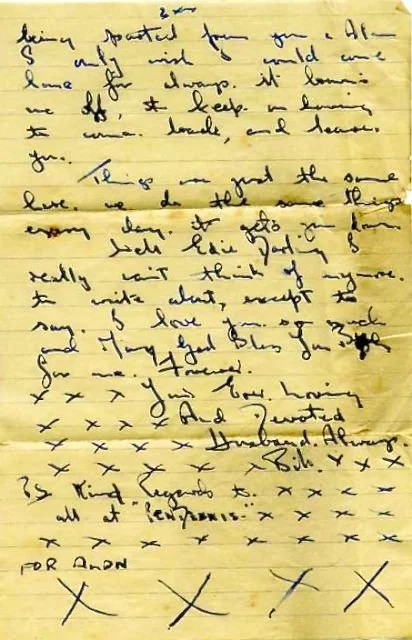 being parted from you & Alan
I only wish I could come
home for always. it browns
me off, to keep on having
to come. back, and leave.
you.
Things are just the same
here. we do the same things
every day. it gets you down.
Well Edie Darling I
really can't think of anymore.
to write about, except to
say. I love you. so much
and May God Bless You Both
for me. Forever.
x x x x Your Ever. Loving
x x x x And Devoted
x x x x Husband. Always.
x x x x x x Bill. x x x
PS Kind Regards to. x x x x
all at " x x x x
x x x x x x x x x
FOR ALAN
X X X X